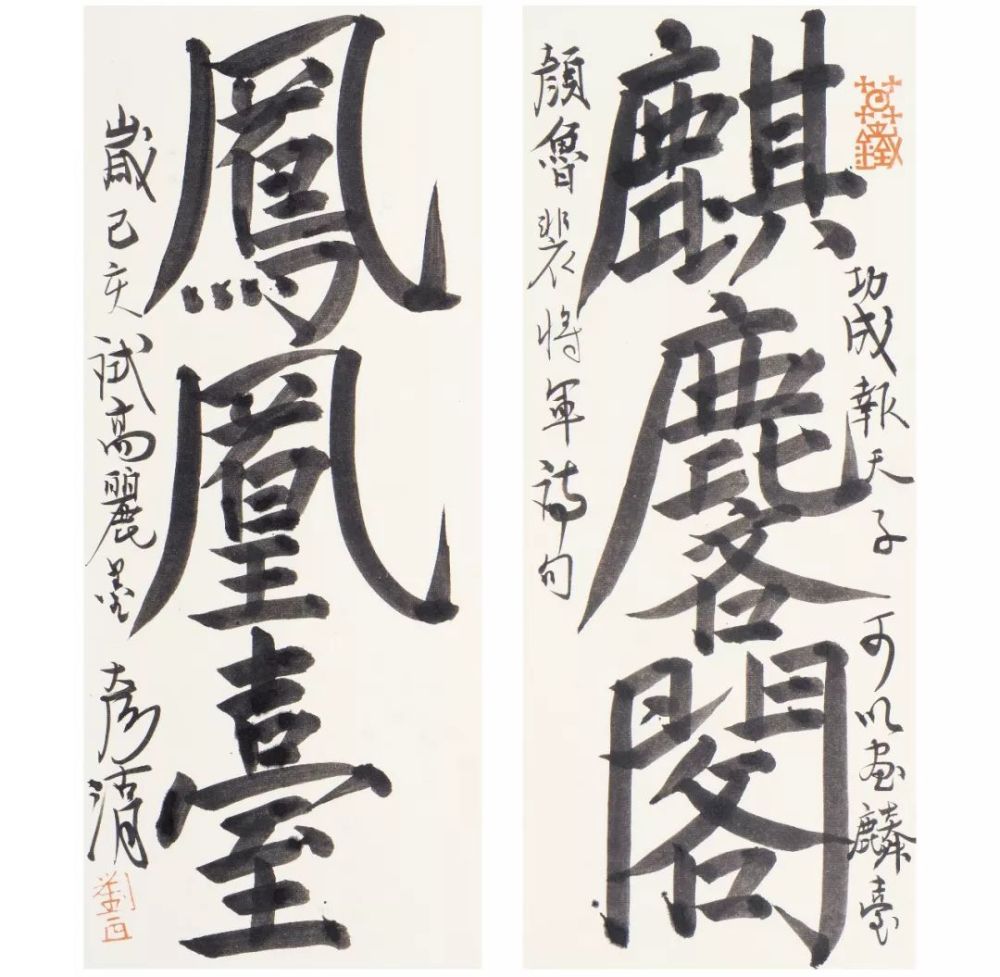 功成報天子 可以畫麟臺
麒麐閣
顔魯裴将軍詩句
鳳凰臺
歲己亥試高麗墨